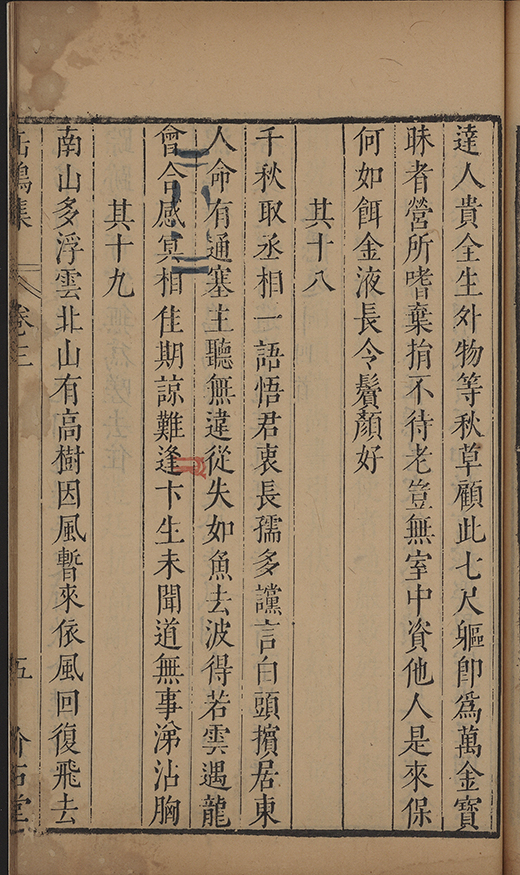 達人貴全生外物等秋草顧此七尺軀卽爲萬金寶
昧者營所嗜棄捐不待老豈無室中資他人是來保
何如餌金液長令鬢顏好
其十八
千秋取丞相一語悟君衷長孺多讜言白頭擯居東
人命有通塞主聽無違從失如魚去波得若雲遇龍
會合感冥相佳期諒難逢卞生未聞道無事涕沾胸
其十九
南山多浮雲北山有高樹因風暫來依風回復飛去
集 卷三 五